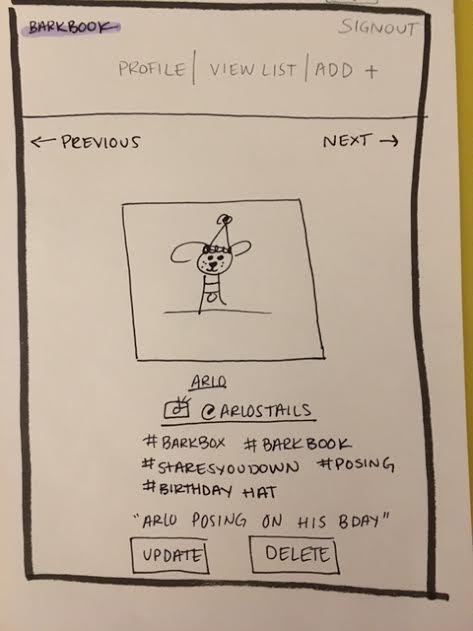 BARKBOOK SIGNOUT
PROFILE | VIEW LIST | ADD +
← PREVIOUS NEXT →
ARLO
@ARLOSTAILS
#BARKBOX #BARKBOOK
#STARESYOUDOWN #POSING
#BIRTHDAY HAT
"ARLO POSING ON HIS BDAY"
UPDATE DELETE